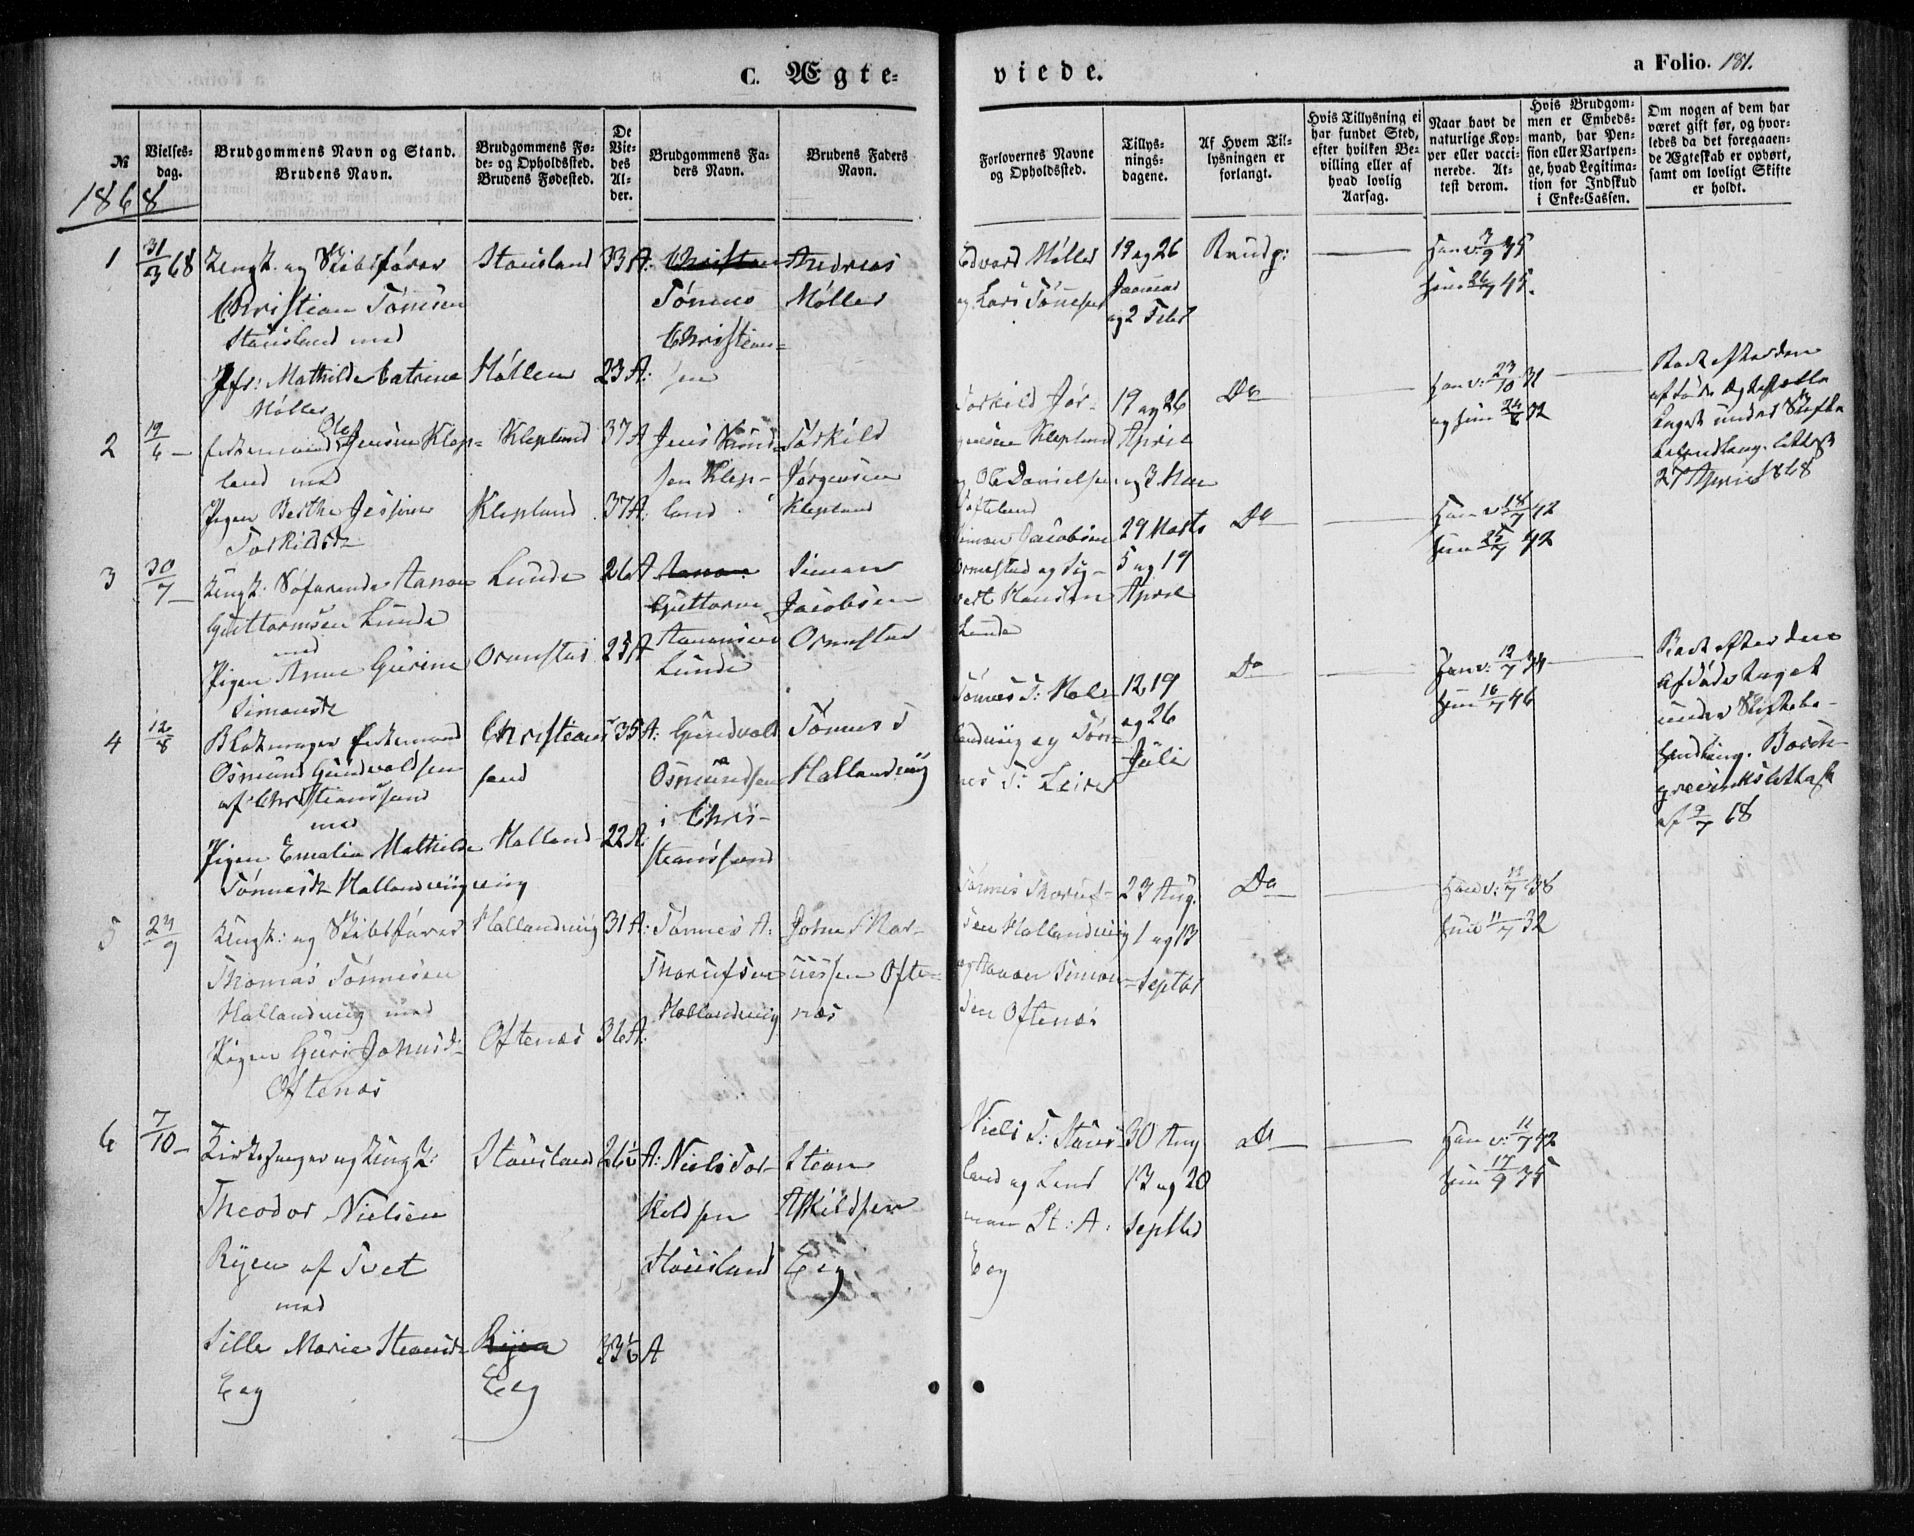 C. Ægte-
viede.
a Folio. 181.
№
Vielses-
dag.
Brudgommens Navn og Stand.
Brudens Navn.
Brudgommens Fø-
de- og Opholdssted.
Brudens Fødested.
De
Vie-
des
Al-
der.
Brudgommens Fa-
ders Navn.
Brudens Faders
Navn.
Forlovernes Navne
og Opholdssted.
Tillys-
nings-
dagene.
Af Hvem Til-
lysningen er
forlangt.
Hvis Tillysning ei
har fundet Sted,
efter hvilken Be-
villing eller af
hvad lovlig
Aarsag.
Naar havt de
naturlige Kop-
per eller vacci-
nerede. At-
test derom.
Hvis Brudgom-
men er Embeds-
mand, har Pen-
sion eller Vartpen-
ge, hvad Legitima-
tion for Indskud
i Enke-Cassen.
Om nogen af dem har
været gift før, og hvor-
ledes da det foregaaen-
de Ægteskab er ophørt,
samt om lovligt Skifte
er holdt.
1868
1
31/3 68
Ungk. og Skibsfører
Christian Tønnsen
Stausland med
Jfr: Mathilde Catrine
Møller
Stausland
Høllen
33 A:
23 A:
Christian
Tønnes
Christian-
sen
Andreas
Møller
Edvard Møller
og Lars Tønnsen
19 og 26
Januar
og 2 Febr
Brudg:
Han v: 7/9 35
Hun 26/7 45.
2
19/6
Enkemand Ole Jensen Klep-
land med
Pigen Berthe Jessine
Torkildsdtr
Klepland
Klepland
37 A
37 A:
Jens Knud-
sen Klep-
land
Torkild
Jørgensen
Klepland
Torkild Jør-
gensen Klepland
og Ole Danielsen
19 og 26
April
og 3 Mai
Do
Han v: 23/10 31
og hun 24/6 32
Havt efter den
afdøde Ægtefælle
taget under Skifte-
behandling.
27 April 1868
3
30/7
Ungk: Søfarende Aanon
Guttormsen Lunde
med
Pigen Anne Gurine
Simonsdtr
Lunde
Ormestad
26 A
25 A
Aanon
Guttorm
Aanonsen
Lunde
Simon
Jacobsen
Ormestad
Simon Jacobsen
Ormestad og Sig-
vert Hansen
Lunde
29 Marts
5 og 19
April
Do
Han v 18/7 42
Hun 25/7 42
4
12/8
Blokmager Enkemand
Osmund Gundvaldsen
af Christianssand
med
Pigen Emalie Mathilde
Tønnesdtr Hallandviig
Christians-
sand
Halland-
viig
35 A:
22 A:
Gundvald
Osmundsen
i Chris-
tianssand
Tønnes T
Hallandviig
Tønnes T: Hal-
landviig og Tøn-
nes T: Leire
12, 19
og 26
Juli
Do
Han v: 12/7 34
Hun 16/7 46
Boet efter den
afdøde taget
under Skiftebe-
handling.
af 9/7 68
5
23/9
Ungk: og Skibsfører
Thomas Tønnesen
Hallandviig med
Pigen Guri Johnsdtr
Oftenæs
Hallandviig
Oftenæs
31 A:
36 A:
Tønnes A:
Thorufsen
Hallandviig
John Mar-
cussen Ofte-
næs
Tønnes Thoruf-
sen Hallandviig
og Aanon Simon-
sen Oftenæs
23 Aug.
1 og 13
Septbr
Do
Han v: 13/7 38
Hun 11/7 32
6
7/10
Kirkesanger og Ungk:
Theodor Nielsen
Ryen af Tvet
med
Sille Marie Steansdtr
Eeg
Stausland
Ryen
Eeg
26½ A:
33½ A
Niels Tor-
kildsen
Stausland
Stean
Askildsen
Eeg
Niels T: Staus-
land og Lens-
man St: A:
Eeg
30 Aug
13 og 20
Septbr
Do
Han v: 11/7 42
Hun 17/9 35